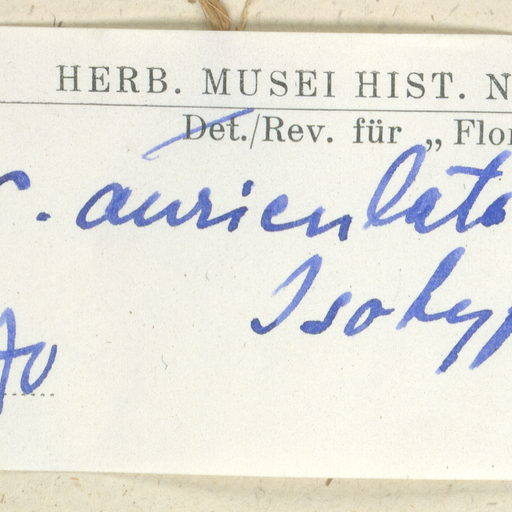 HERB. MUSEI HIST. N
Det./Rev. für „Flor
. auriculata
Isotyp
70